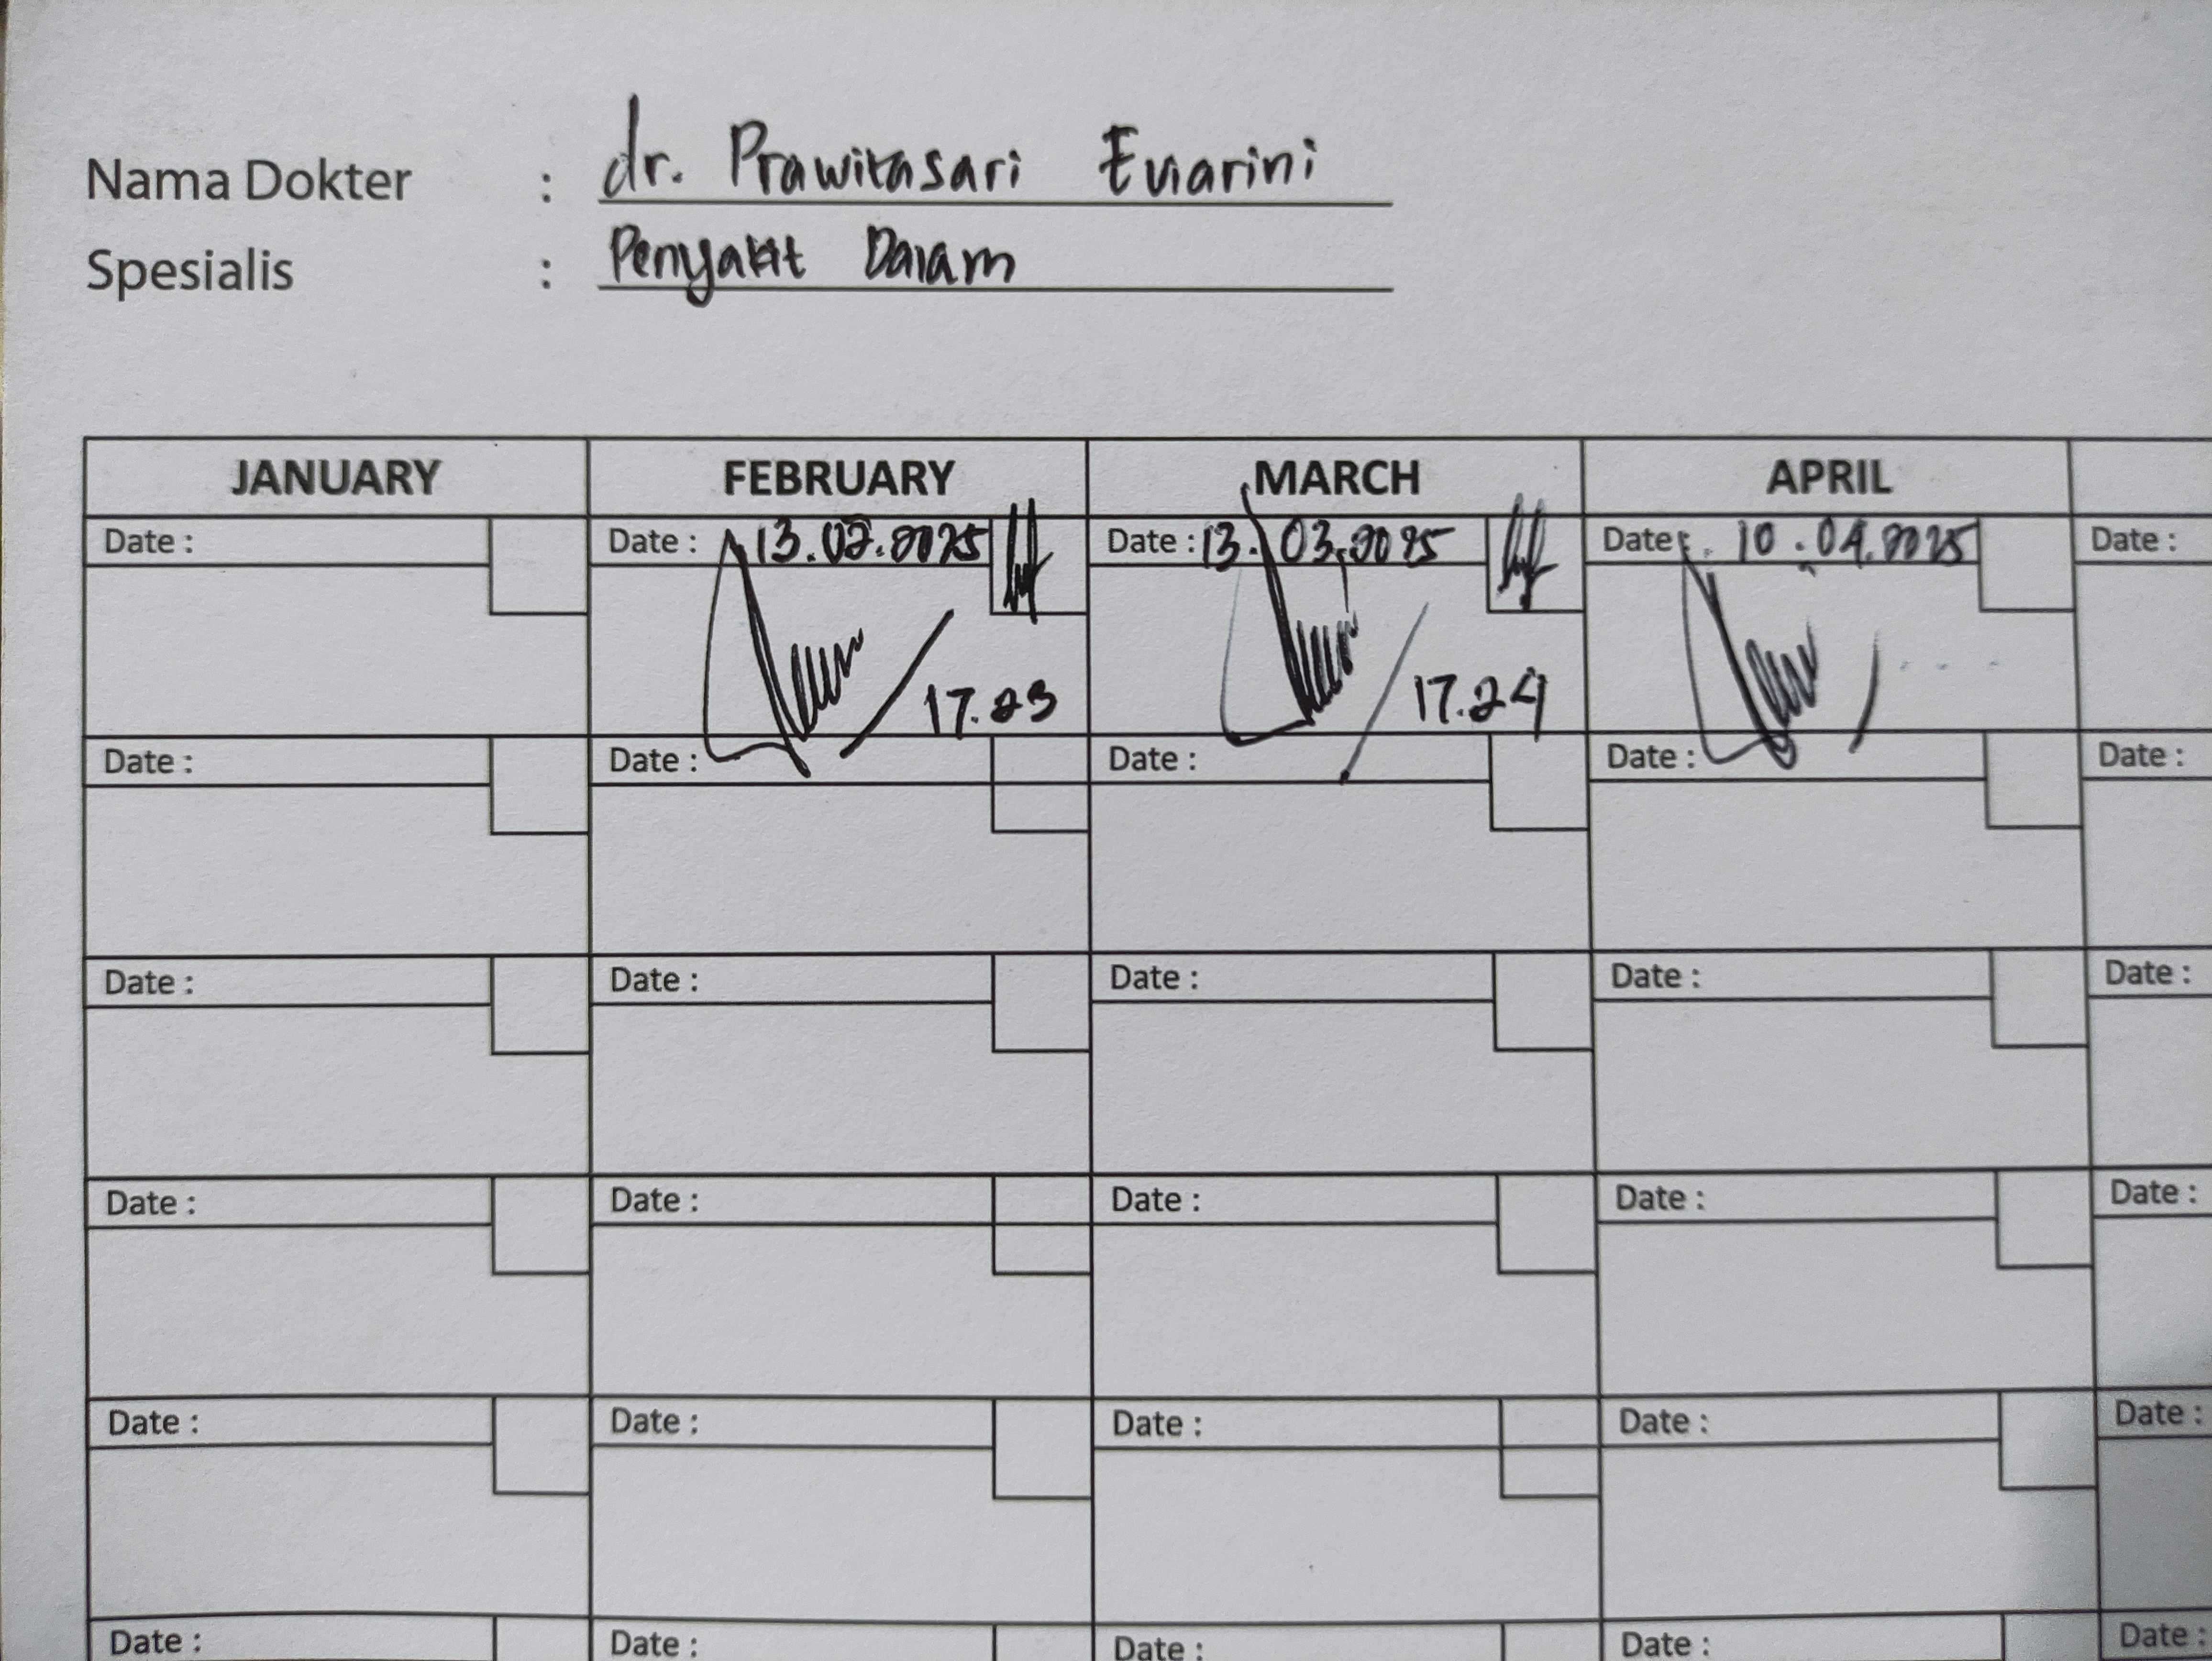 Nama Dokter : dr. Prawitasari Evarini
Spesialis : Penyakit Dalam
JANUARY FEBRUARY MARCH APRIL
Date : Date : 13.02.2025 Date : 13.03.2025 Date : 10.04.2025 Date :
17.23 17.24
Date : Date : Date : Date : Date :
Date : Date : Date : Date : Date :
Date : Date : Date : Date : Date :
Date : Date : Date : Date : Date :
Date : Date : Date : Date : Date :